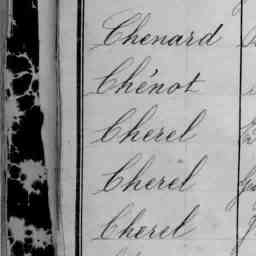 Chenard
Chénot
Cherel
Cherel
Cherel